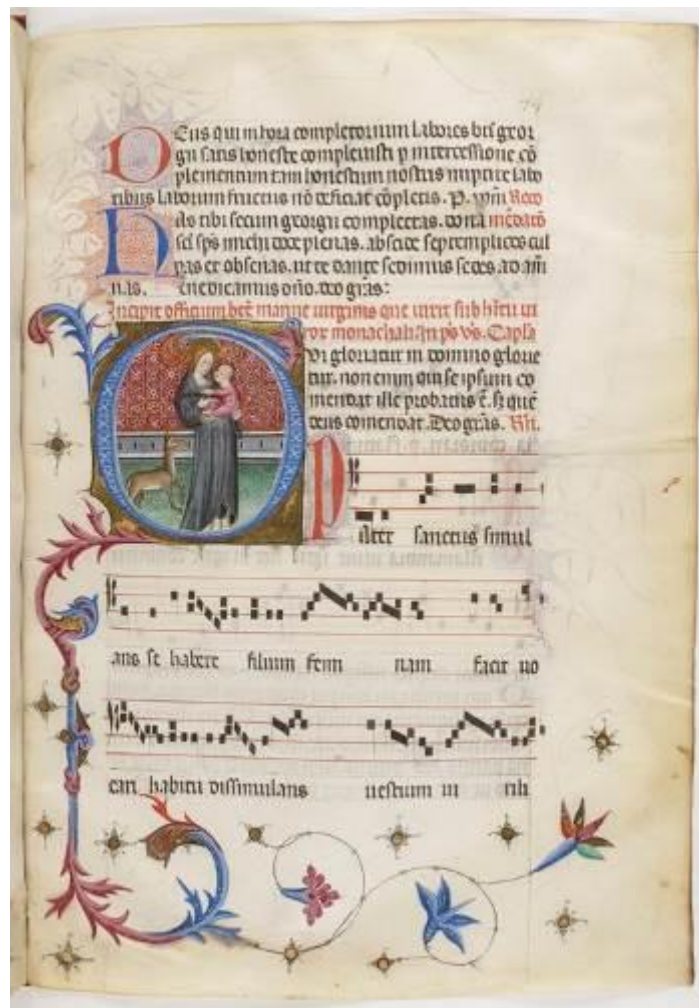 DEus qui in hora completorium labores bti geor
gii satis honeste complevisti p intercessione cō
plementum tam honestum nostris labo
ribus laborum fructus nō deficiat cōpletis. P.
tibi secum georgii complectas. dona
sci sps michi doce plenas. abscide septemplices cul
pas et obsenas. ut te dante sedimus sedes. ad
nas. Benedicamus dño. deo grās:
Incipit officium bte marine virginis que vixit sub hitu vi
ror monachali añ ps vs. Capla
Qui gloriatur in domino glorie
tur. non enim qui se ipsum co
mendat ille probatus ē. sꝫ quē
deus comendat. Deo grās. Rm.
Pater sanctus simul
ans se habere filium femi nam facit vo
cari habitu dissimulans vestium vi rili